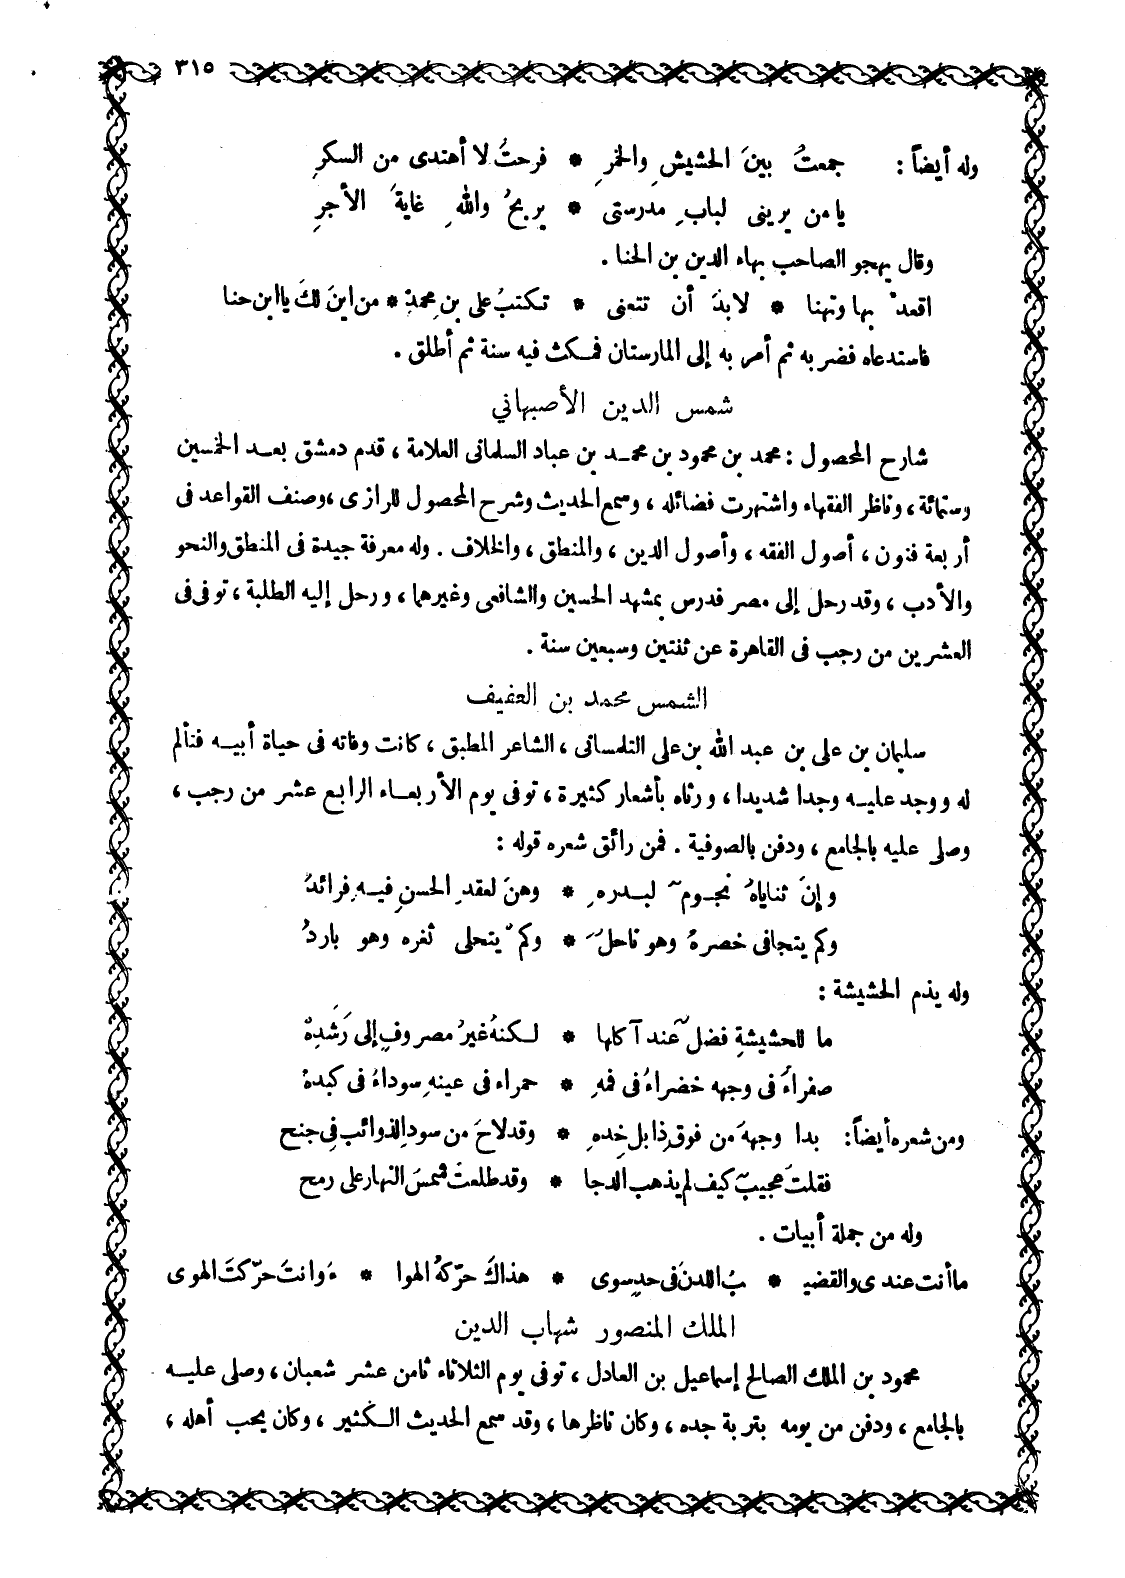 ٣١٥
وله أيضاً : جمعتُ بينَ الحشيشِ والخمرِ * فرحتُ لا أهتدى من السكرِ
يا من يرينى لبابِ مدرستى * يربحُ واللهِ غايةَ الأجرِ
وقال يهجو الصاحب بهاء الدين بن الحنا .
اقعدْ بها وتهنا * لابدَ أن تتعنى * تكتبُ على بن محمدٍ * من اين لكَ يا ابن حنا
فاستدعاه فضربه ثم أمر به إلى المارستان فمكث فيه سنة ثم أطلق .
شمس الدين الأصبهاني
شارح المحصول : محمد بن محمود بن محمد بن عباد السلمانى العلامة ، قدم دمشق بعد الخمسين
وستمائة ، وناظر الفقهاء واشتهرت فضائله ، وسمع الحديث وشرح المحصول للرازى ، وصنف القواعد فى
أربعة فنون ، أصول الفقه ، وأصول الدين ، والمنطق ، والخلاف . وله معرفة جيدة فى المنطق والنحو
والأدب ، وقد رحل إلى مصر فدرس بمشهد الحسين والشافعى وغيرهما ، ورحل إليه الطلبة ، توفى فى
العشرين من رجب فى القاهرة عن ثنتين وسبعين سنة .
الشمس محمد بن العفيف
سليمان بن على بن عبد الله بن على التلمسانى ، الشاعر المطبق ، كانت وفاته فى حياة أبيه فتألم
له ووجد عليه وجدا شديدا ، ورثاه بأشعار كثيرة ، توفى يوم الأربعاء الرابع عشر من رجب ،
وصلى عليه بالجامع ، ودفن بالصوفية . فمن رائق شعره قوله :
وإنَ ثناياهُ نجومٌ لبدرهِ * وهنَ لعقدِ الحسنِ فيهِ فرائدُ
وكم يتجافى خصرهُ وهو ناحلٌ * وكم يتحلى ثغره وهو باردُ
وله يذم الحشيشة :
ما للحشيشةِ فضلٌ عند آكلها * لكنهُ غيرُ مصروفٍ إلى رَشَدِهْ
صفراءُ فى وجهه خضراءُ فى فمهِ * حمراء فى عينهِ سوداءُ فى كبدهْ
ومن شعره أيضاً : بدا وجههُ من فوق ذابل خدهِ * وقد لاحَ من سود الذوائب فى جنح
فقلت عجيبٌ كيف لم يذهب الدجا * وقد طلعت شمس النهار على رمح
وله من جملة أبيات .
ما أنت عندى والقضيـ * ـبُ اللدنَ فى حدٍ سوى * هذاكَ حرّكهُ الهوا * ءَ وانتَ حرّكتَ الهوى
الملك المنصور شهاب الدين
محمود بن الملك الصالح إسماعيل بن العادل ، توفى يوم الثلاثاء ثامن عشر شعبان ، وصلى عليه
بالجامع ، ودفن من يومه بتربة جده ، وكان ناظرها ، وقد سمع الحديث الكثير ، وكان يحب أهله ،